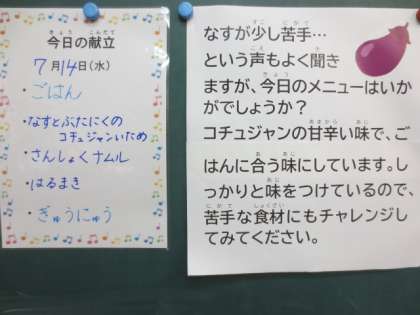 今日の献立
7月14日(水)
・ごはん
・なすとぶたにくの
コチュジャンいため
・さんしょくナムル
・はるまき
・ぎゅうにゅう
なすが少し苦手…
という声もよく聞き
ますが、今日のメニューはいか
がでしょうか?
コチュジャンの甘辛い味で、ご
はんに合う味にしています。し
っかりと味をつけているので、
苦手な食材にもチャレンジし
てみてください。